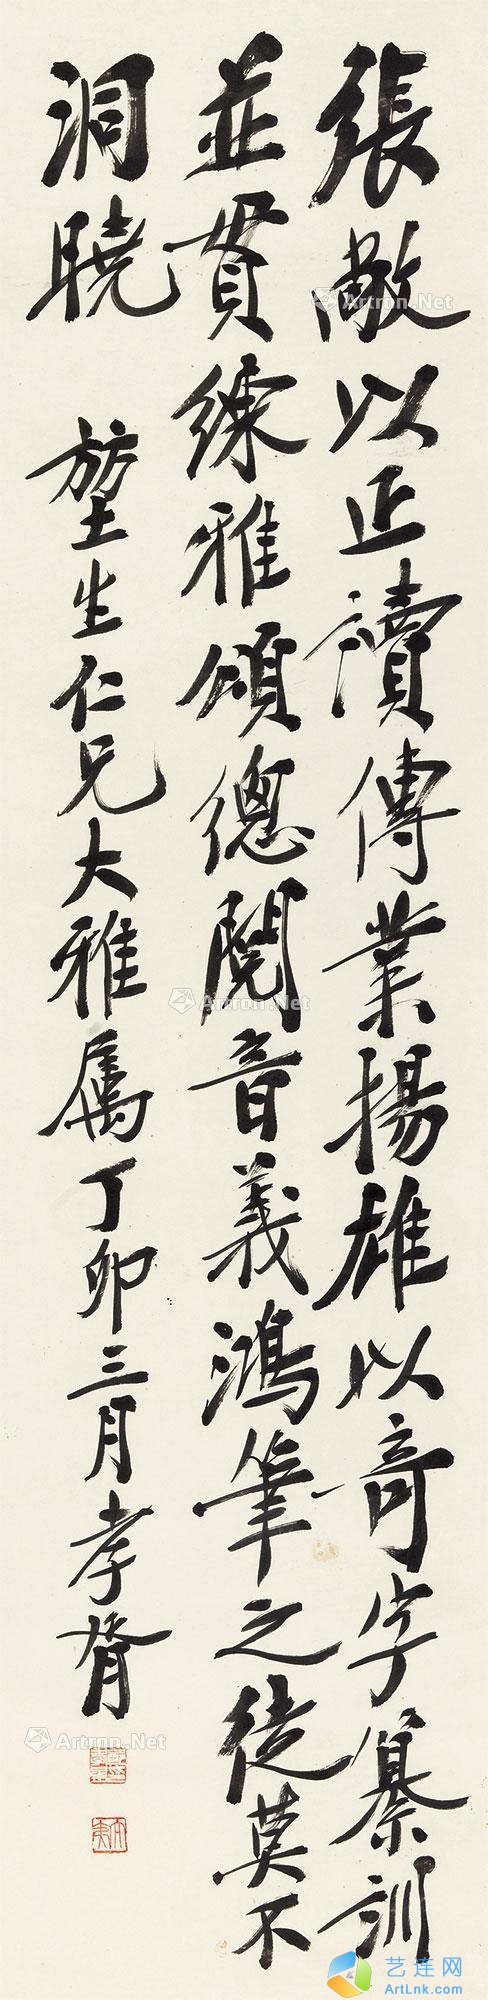 張敞以正讀傳業揚雄以奇字纂訓
並貫練雅頌總閱音義鴻筆之徒莫不
洞曉
堃生仁兄大雅属丁卯三月孝胥
Artron.Net
Artron.Net
Artron.Net
艺连网
ArtLnk.com